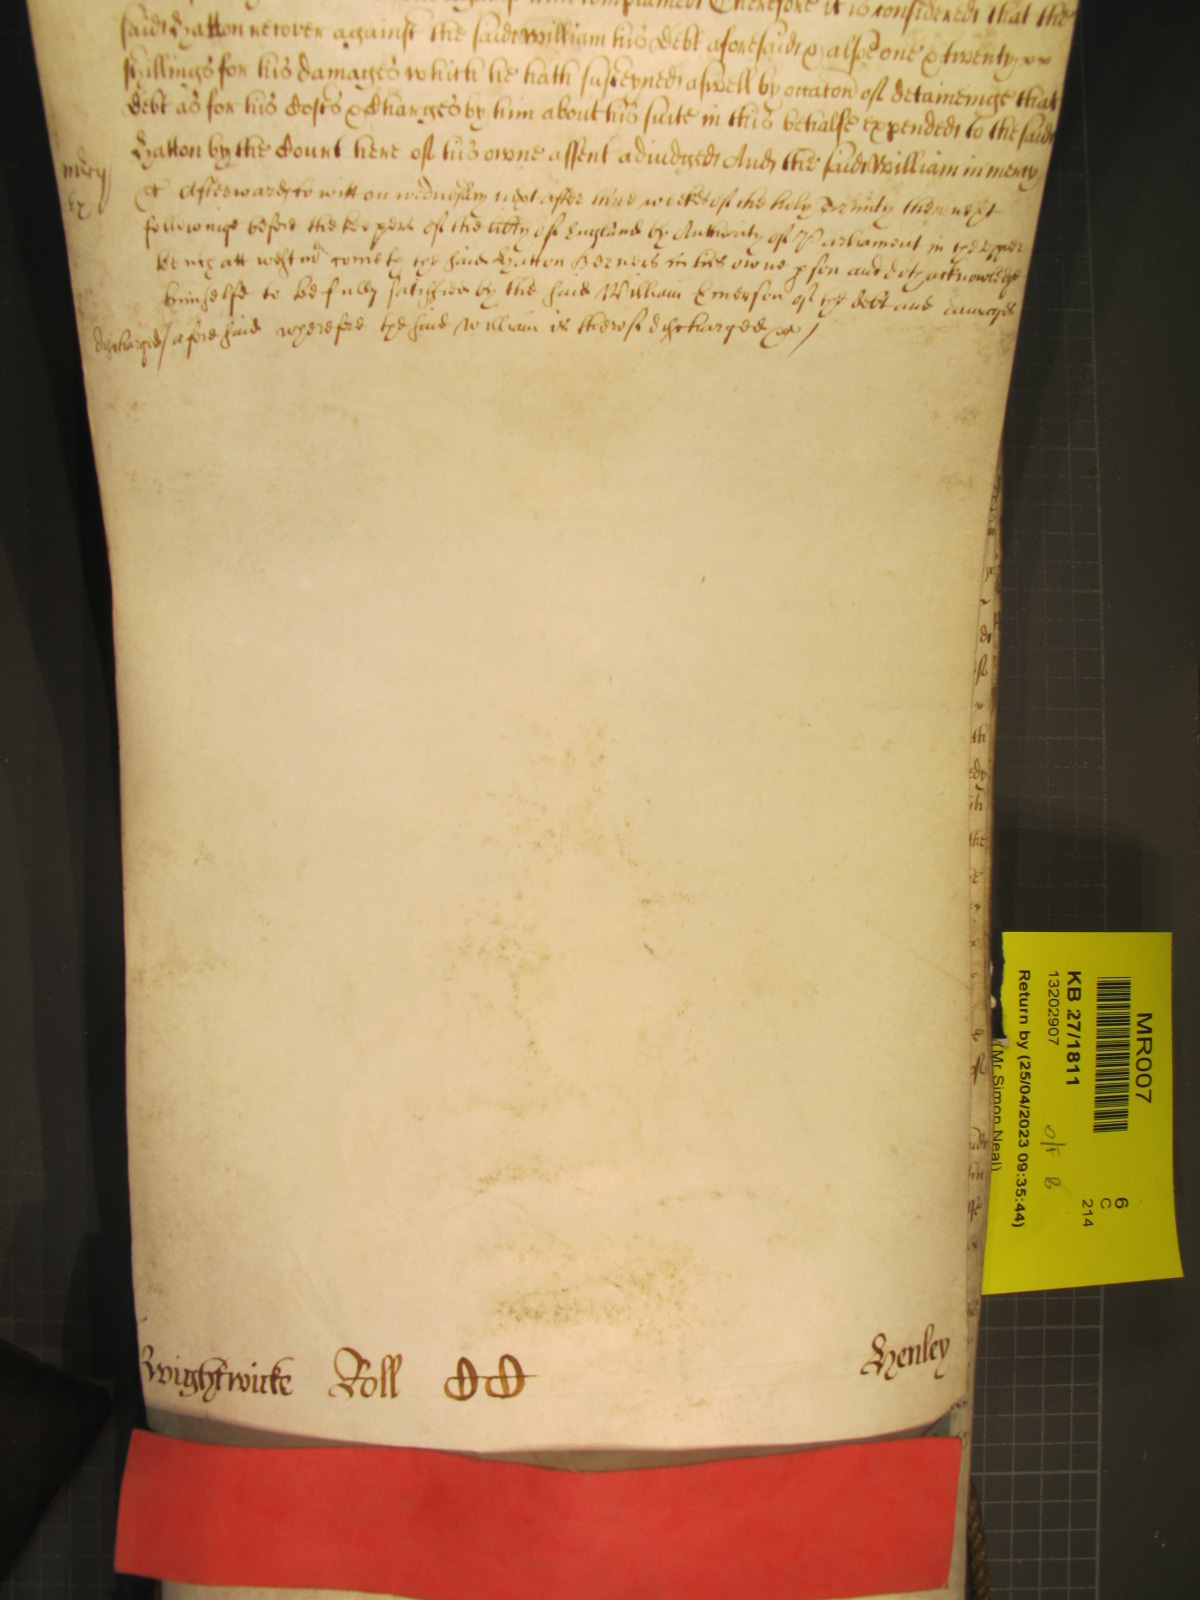 him Complainedt Therefore it is considered that the
said Hatton recover against the said William his Debt aforesaid & alsoe one & twenty
shillings for his damages which he hath susteyned aswell by occacon of detaineinge that
Debt as for his Costs & Charges by him about his suite in this behalfe expended to the said
Hatton by the Court here of his owne assent adiudged And the said William in mercy
mercy
&c Afterwards to witt on wednesday next after three weekes of the holy Trinity then next
followinge before the keepers of the liberty of England by Authority of Parliament in the upper
bench att westmr cometh the said Hatton Berners in his owne pson and doth acknowledge
himselfe to be fully satisfied by the said William Emerson of the debt and damages
discharged aforesaid wherefore the said William is thereof discharged &c
Wightwicke Roll
Henley
MR007
KB 27/1811
13202907
Return by (25/04/2023 09:35:44)
(Mr Simon Neal)
6
C
214
O/F B